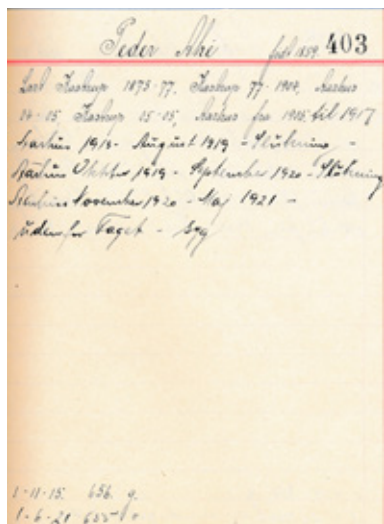 Peder Ahi født 1859. 403
Lært Kastrup 1875-77. Kastrup 77-1904, Aarhus
04-05, Kastrup 05-05, Aarhus fra 1905, til 1917
Aarhus 1918- August 1919 - Slukning -
Aarhus Oktober 1919 - September 1920 - Slukning
Aarhus November 1920 - Maj 1921 -
udenfor Faget - Syg
1-11-15. 656. g.
1-6-21 655